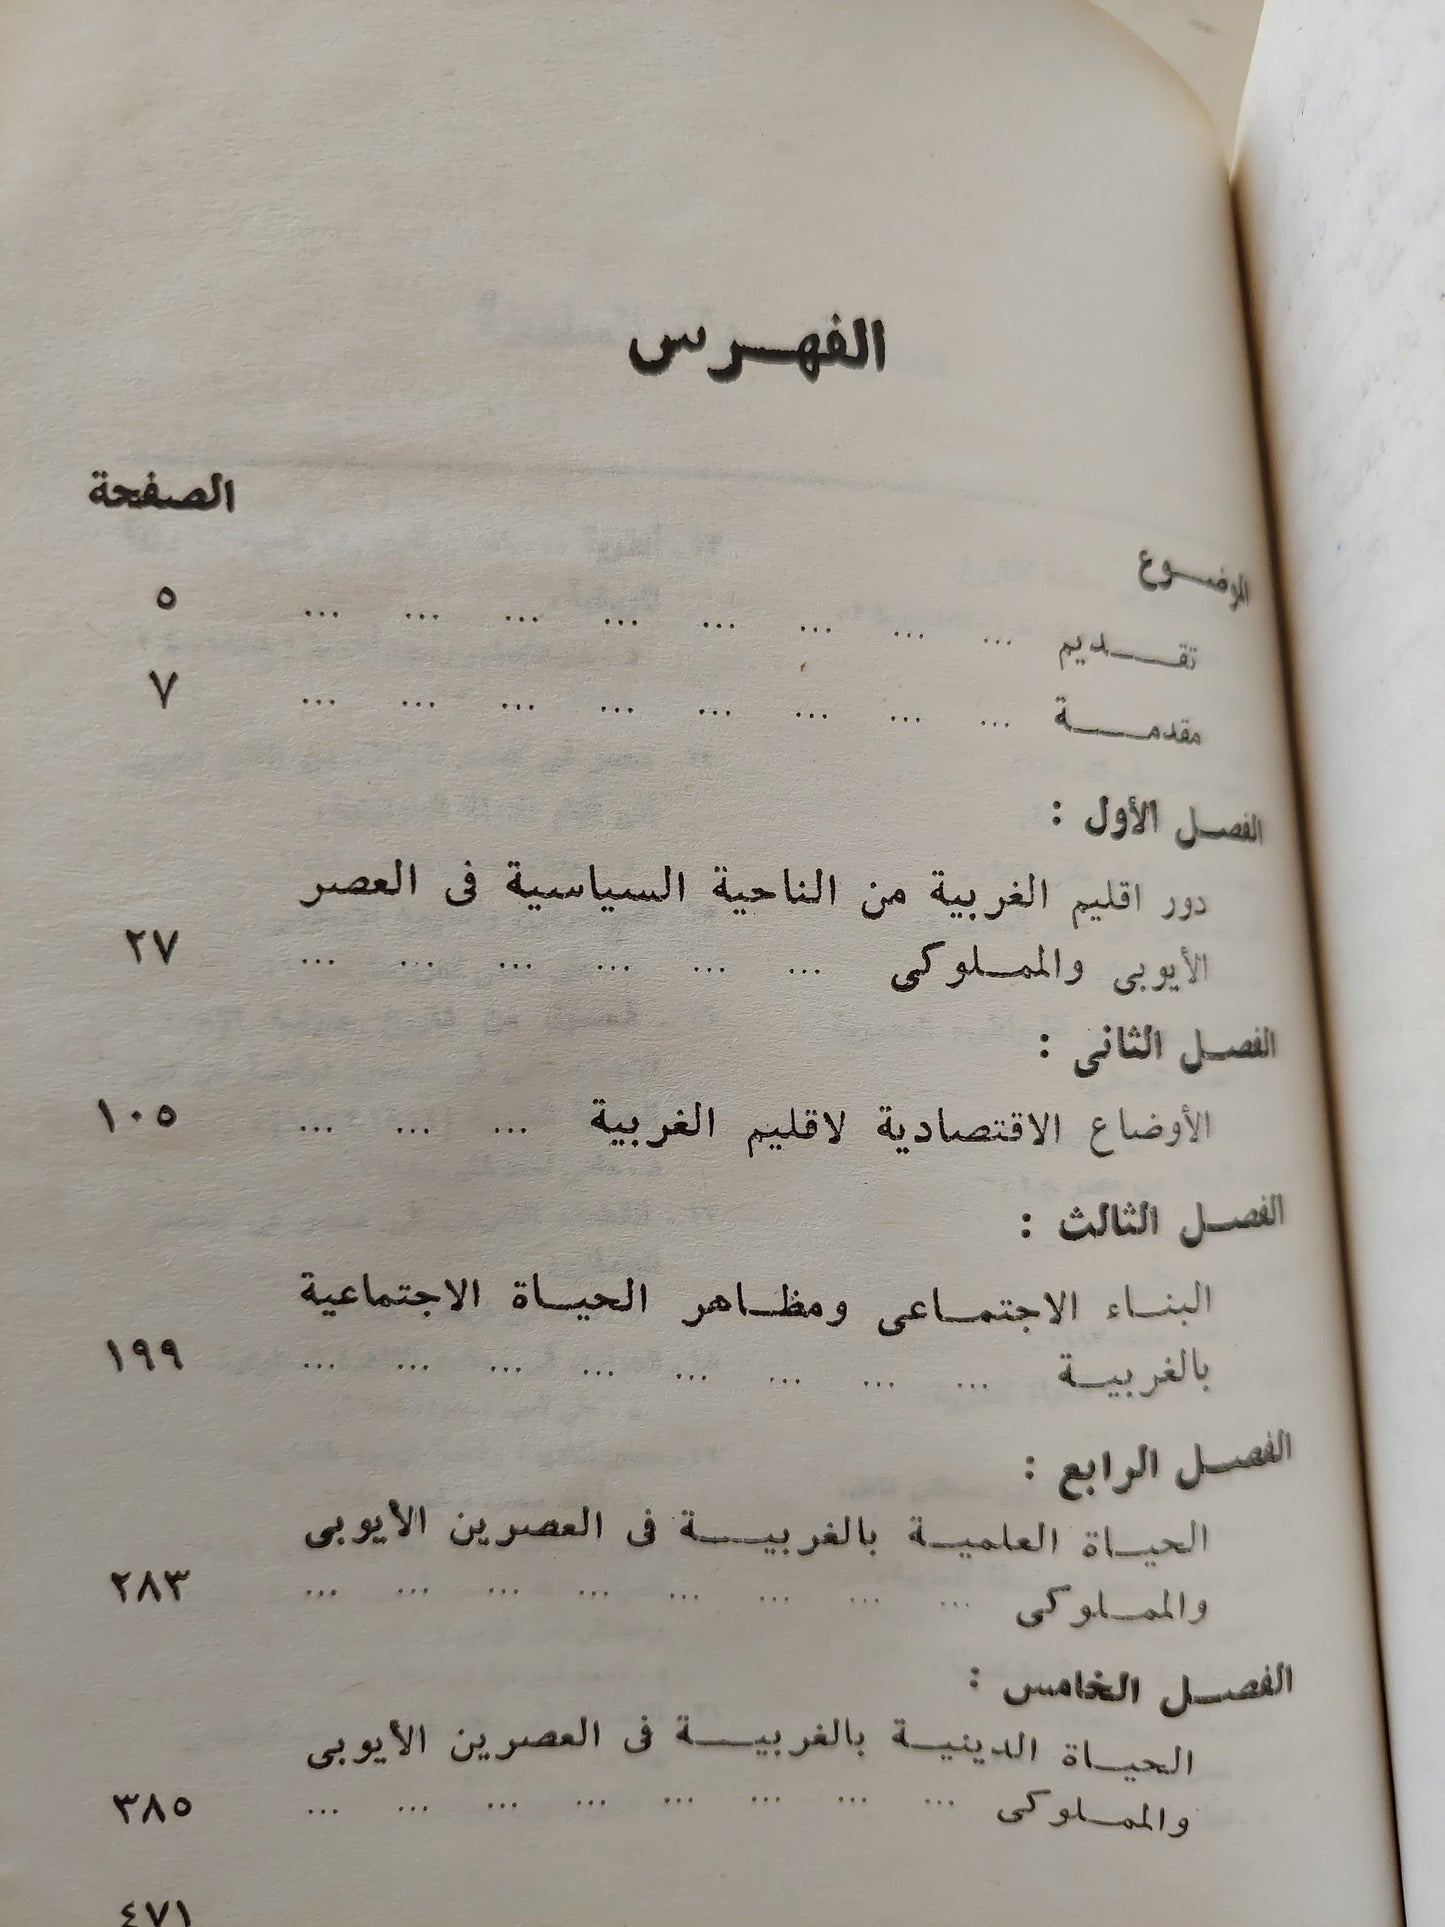 الفهرس
الموضوع الصفحة
تقديم ... ... ... ... ... ... ... ... ٥
مقدمة ... ... ... ... ... ... ... ... ٧
الفصل الأول :
دور اقليم الغربية من الناحية السياسية فى العصر
الأيوبى والمملوكى ... ... ... ... ... ... ٢٧
الفصل الثانى :
الأوضاع الاقتصادية لاقليم الغربية ... ... ... ١٠٥
الفصل الثالث :
البناء الاجتماعى ومظاهر الحياة الاجتماعية
بالغربية ... ... ... ... ... ... ... ... ١٩٩
الفصل الرابع :
الحياة العلمية بالغربية فى العصرين الأيوبى
والمملوكى ... ... ... ... ... ... ... ... ٢٨٣
الفصل الخامس :
الحياة الدينية بالغربية فى العصرين الأيوبى
والمملوكى ... ... ... ... ... ... ... ... ٣٨٥
٤٧١